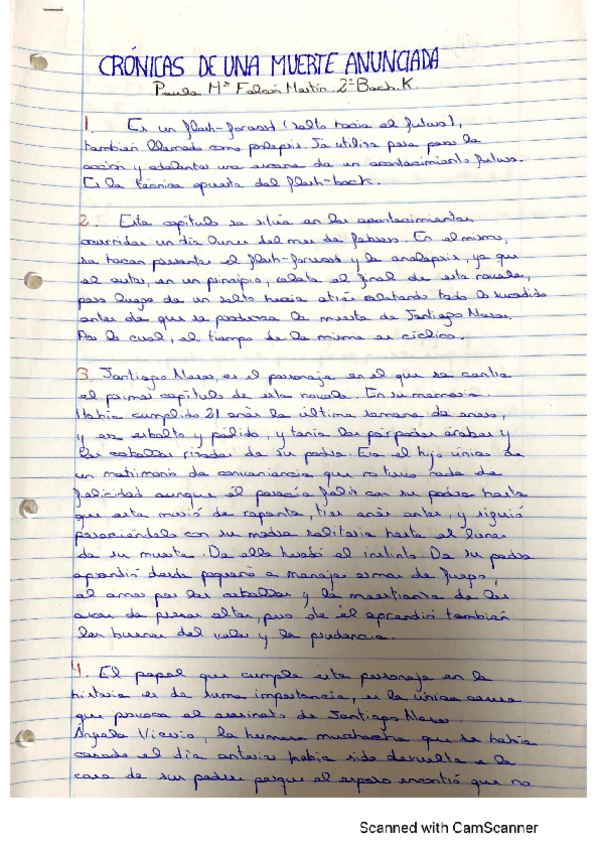 CRÓNICAS DE UNA MUERTE ANUNCIADA
Paula Mª Falcón Martín 2º Bach. K.
1. Es un flash-forward (salto hacia el futuro),
también llamado como prolepsis. Se utiliza para parar la
acción y adelantar una escena de un acontecimiento futuro.
Es la técnica opuesta del flash-back.
2. Este capítulo se sitúa en los acontecimientos
ocurridos un día lunes del mes de febrero. En el mismo,
se hacen presentes el flash-forward y la analepsis, ya que
el autor, en un principio, relata el final de esta novela,
pero luego da un salto hacia atrás relatando todo lo sucedido
antes de que se produzca la muerte de Santiago Nasar.
Por lo cual, el tiempo de la misma es cíclico.
3. Santiago Nasar, es el personaje en el que se centra
el primer capítulo de esta novela. En su memoria.
Había cumplido 21 años la última semana de enero,
y era esbelto y pálido, y tenía los párpados árabes y
los cabellos rizados de su padre. Era el hijo único de
un matrimonio de conveniencia que no tuvo nada de
felicidad aunque él parecía feliz con su padre hasta
que este murió de repente, tres años antes, y siguió
pareciéndolo con su madre solitaria hasta el lunes
de su muerte. De ella heredó el instinto. De su padre
aprendió desde pequeño a manejar armas de fuego,
el amor por los caballos y la maestranza de las
aves de presas altas, pero de él aprendió también
las buenas del valor y la prudencia.
4. El papel que cumple este personaje en la
historia es de suma importancia, es la única causa
que provoca el asesinato de Santiago Nasar
Ángela Vicario, la hermosa muchacha que se había
casado el día anterior había sido devuelta a la
casa de sus padres porque el esposo encontró que no
Scanned with CamScanner